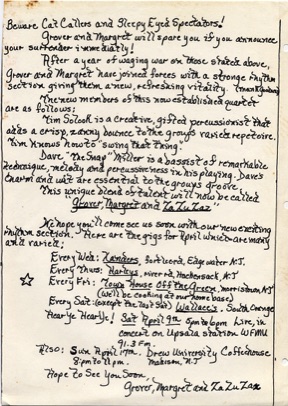 Beware Cat Callers and Sleepy Eyed Spectators!
Grover and Margret will spare you if you announce
your surrender immediately!
After a year of waging war on those stated above,
Grover and Margret have joined forces with a stronge rhythm
section giving them a new, refreshing vitality. (thank goodness)
The new members of this now established quartet
are as follows:
Tim Solook is a creative, gifted percussionist that
adds a crisp, zanny bounce to the group's varied repertoire.
Tim knows how to "swing that thing".
Dave, "The Snap" Miller is a bassist of remarkable
technique, melody and percussiveness in his playing. Dave's
charm and wit are essential to the groups groove.
This unique blend of talent will now be called
"Grover, Margret and Za Zu Zaz"
We hope you'll come see us soon with our new exciting
rhythm section. Here are the gigs for April which are many
and varied;
Every Wed: Xanders, fort lee rd, Edgewater N.J.
Every Thus: Hardys, river rd, Hackensack, N.J.
Every Fri: Town House Off the Green, morristown N.J
(we'll be cooking at our home base)
Every Sat: (except the last Sat) Wallace's, South Orange
Hear Ye Hear Ye! Sat April 9th 5pm to 6pm Live, in
concert on Upsala station WFMU
91.3 FM.
Also: Sun April 17th. Drew University Coffeehouse
8:pm to 11pm. Madison, N.J.
Hope To See You Soon,
Grover, Margret and Za Zu Zaz